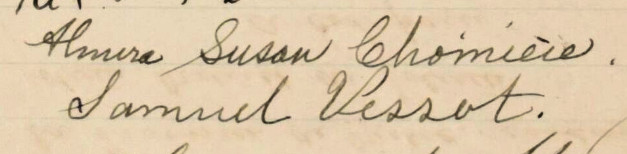 Almira Susan Choinière.
Samuel Vessot.